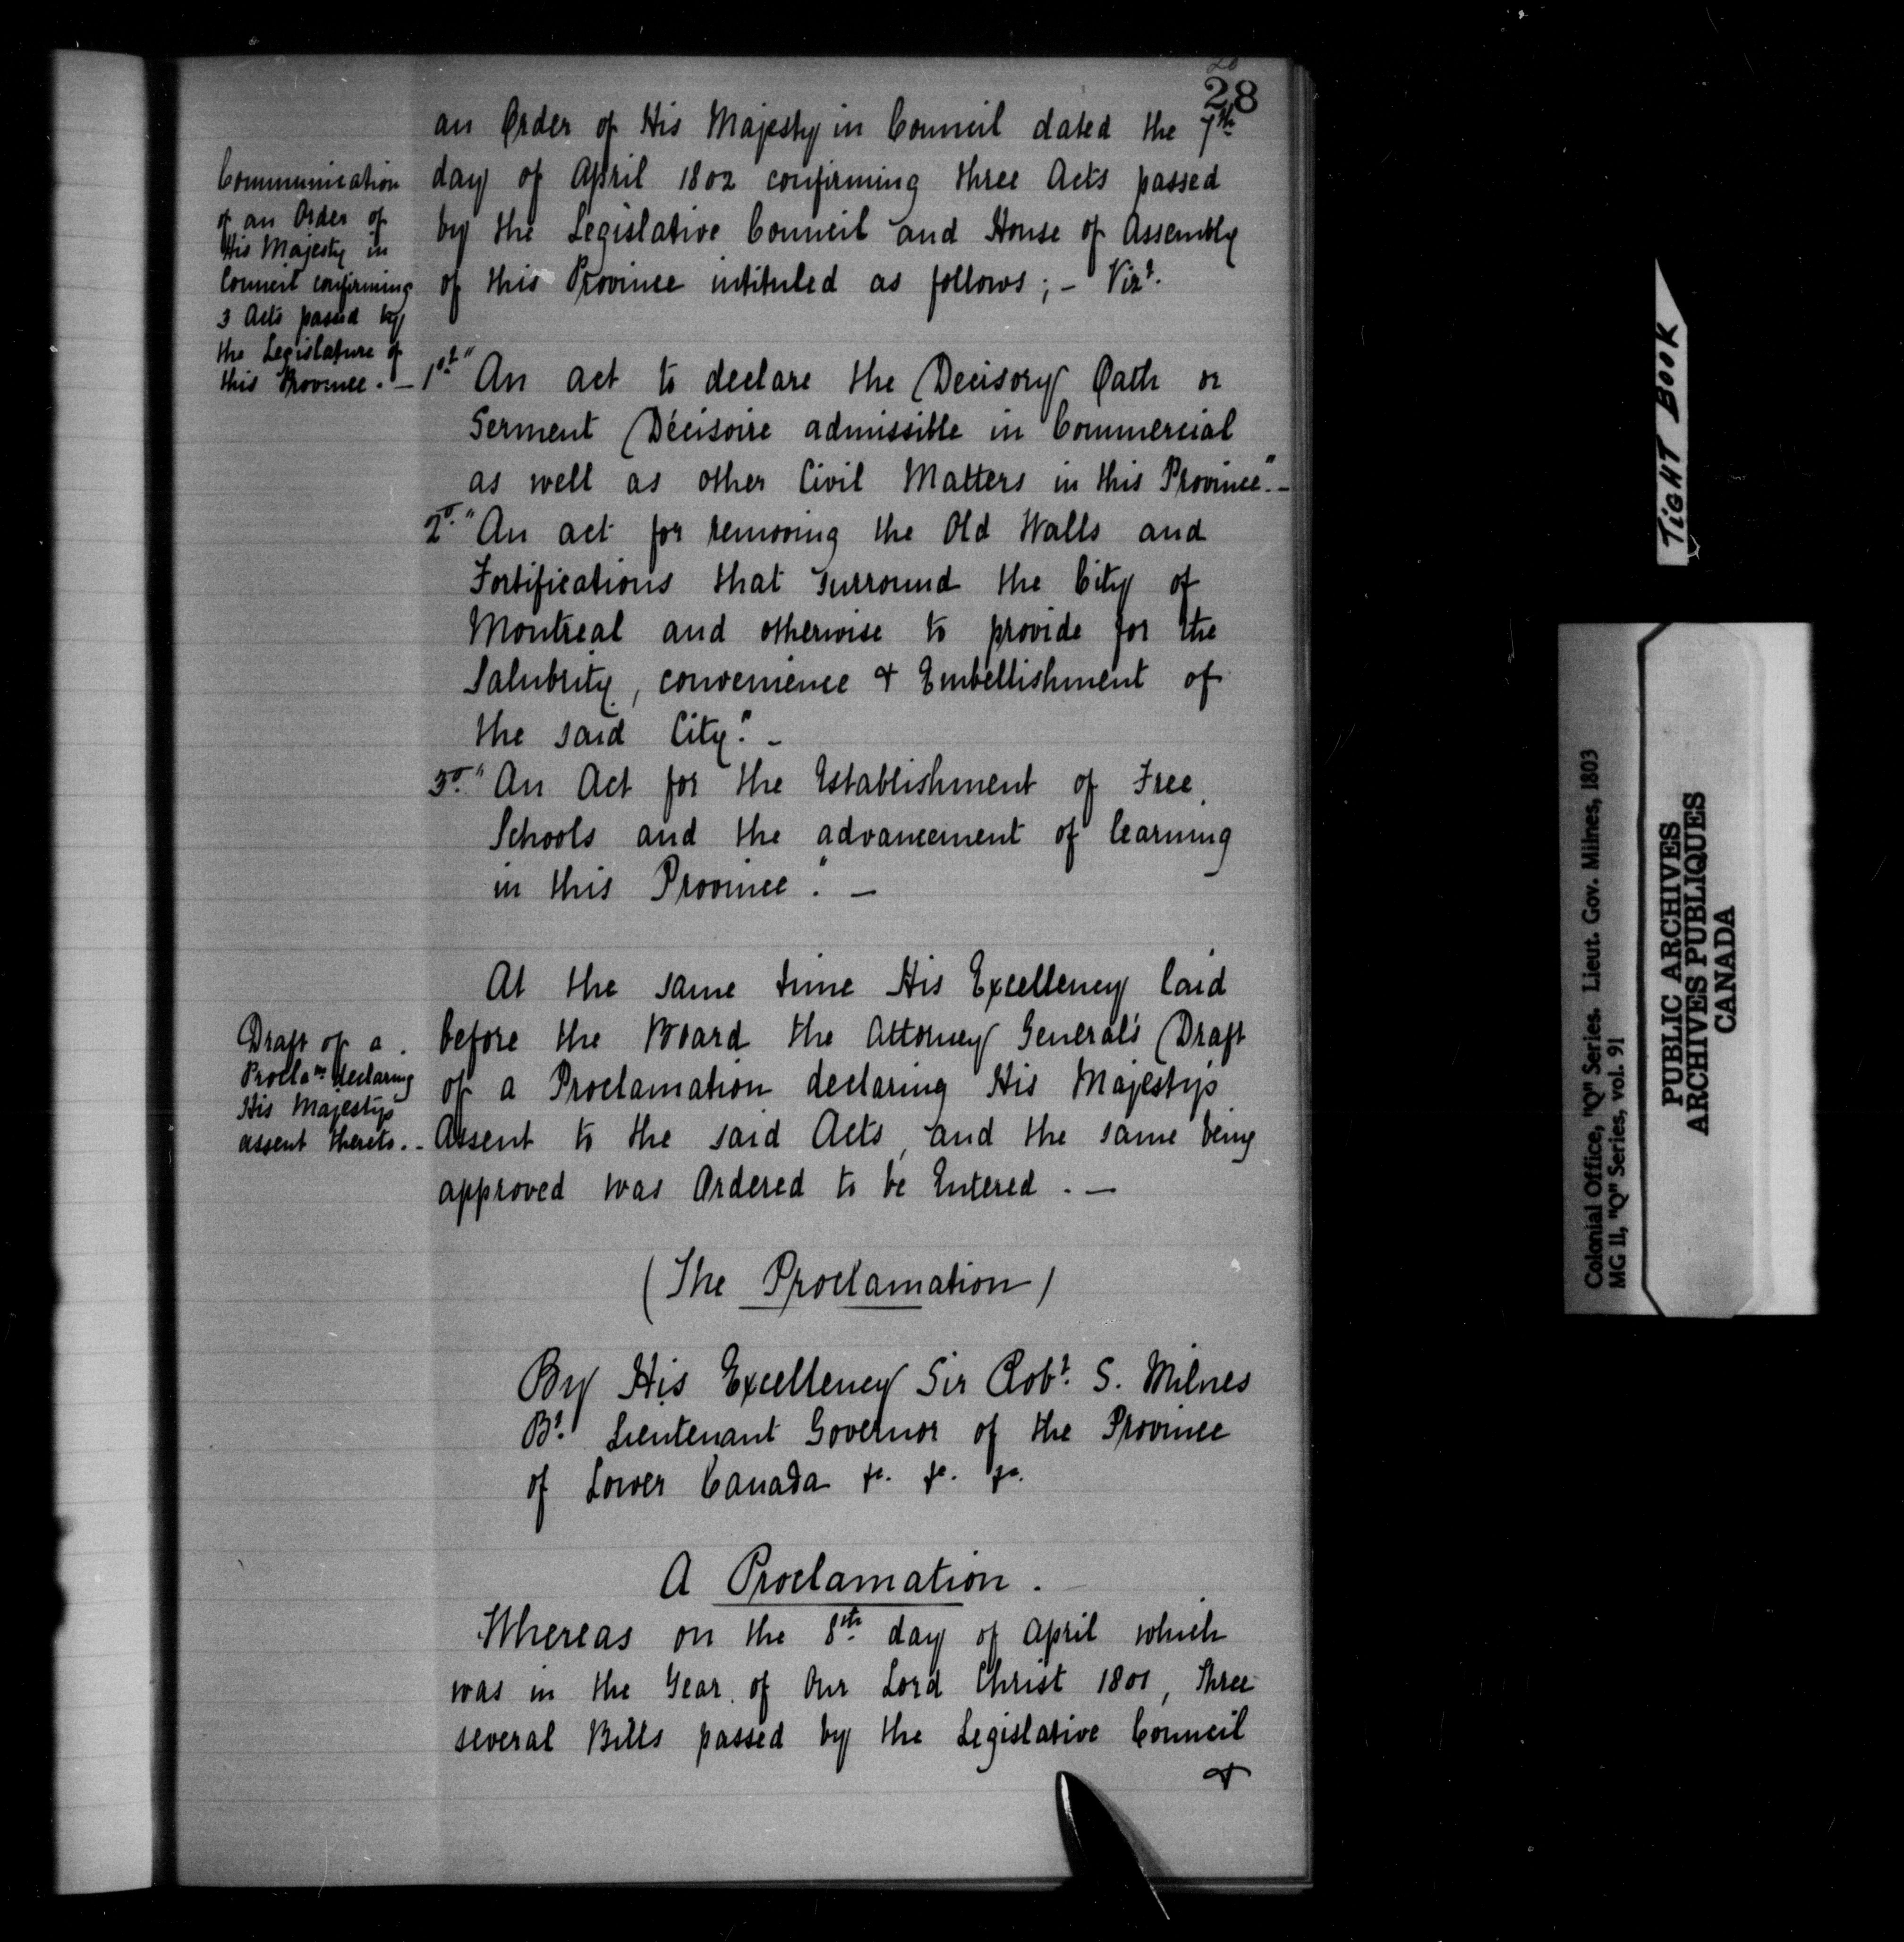 28
an Order of His Majesty in Council dated the 7th
day of April 1802 confirming three Acts passed
by the Legislative Council and House of Assembly
of this Province intituled as follows; - Vizt.
Communication
of an Order of
His Majesty in
Council confirming
3 Acts passed by
the Legislature of
this Province. -
1st "An act to declare the Decisory Oath or
Serment Décisoire admissible in Commercial
as well as other Civil Matters in this Province". -
2o. "An act for removing the Old Walls and
Fortifications that surround the City of
Montreal and otherwise to provide for the
Salubrity, convenience & Embellishment of
the said City." -
3o. "An Act for the Establishment of Free
Schools and the advancement of learning
in this Province". -
At the same time His Excellency laid
before the Board the Attorney General's Draft
of a Proclamation declaring His Majesty's
Assent to the said Acts, and the same being
approved was Ordered to be Entered. -
Draft of a
Proclan declaring
His Majesty's
assent thereto. -
(The Proclamation)
By His Excellency Sir Robt. S. Milnes
Bt. Lieutenant Governor of the Province
of Lower Canada &c. &c. &c.
A Proclamation.
Whereas on the 8th day of April which
was in the Year of Our Lord Christ 1801, Three
several Bills passed by the Legislative Council
&
TIGHT BOOK
Colonial Office, "Q" Series. Lieut. Gov. Milnes, 1803
MG 11, "Q" Series, vol. 91
PUBLIC ARCHIVES
ARCHIVES PUBLIQUES
CANADA